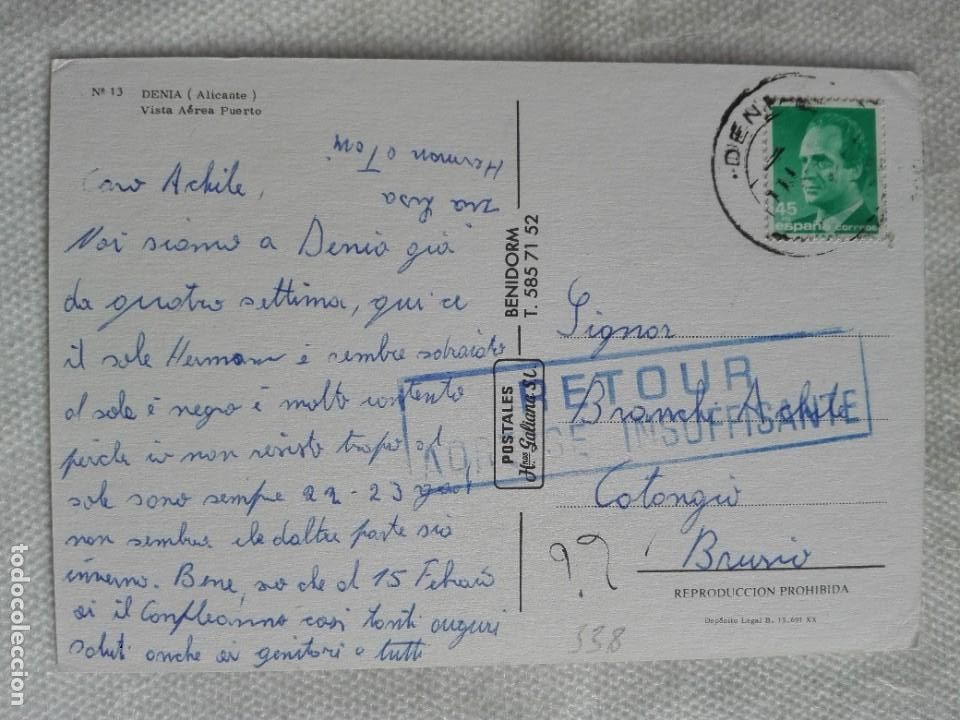 Nº 13 DENIA ( Alicante )
Vista Aérea Puerto
Caro Achile,
Noi siamo a Denia già
da quatro settima, qui ce
il sole Hermann é sembre sdraiato
al sole é negro é molto contento
perche io non resisto tropo al
sole sono sempre 22 - 23
non sembra che daltra parte sia
inverno. Bene, so che al 15 Febraio
ai il Compleanno cosi tanti auguri
saluti anche ai genitori e tutti
Zia Lisa
Hermann e Toni
BENIDORM
T. 585 71 52
POSTALES
Hnos Galiana S.L.
DENIA
45
españa correos
Signor
RETOUR
ADRESSE INSUFFISANTE
Branchi Achile
Cotongio
Brusio
??
REPRODUCCION PROHIBIDA
Depósito Legal B. 13.691 XX
538
todocoleccion.net